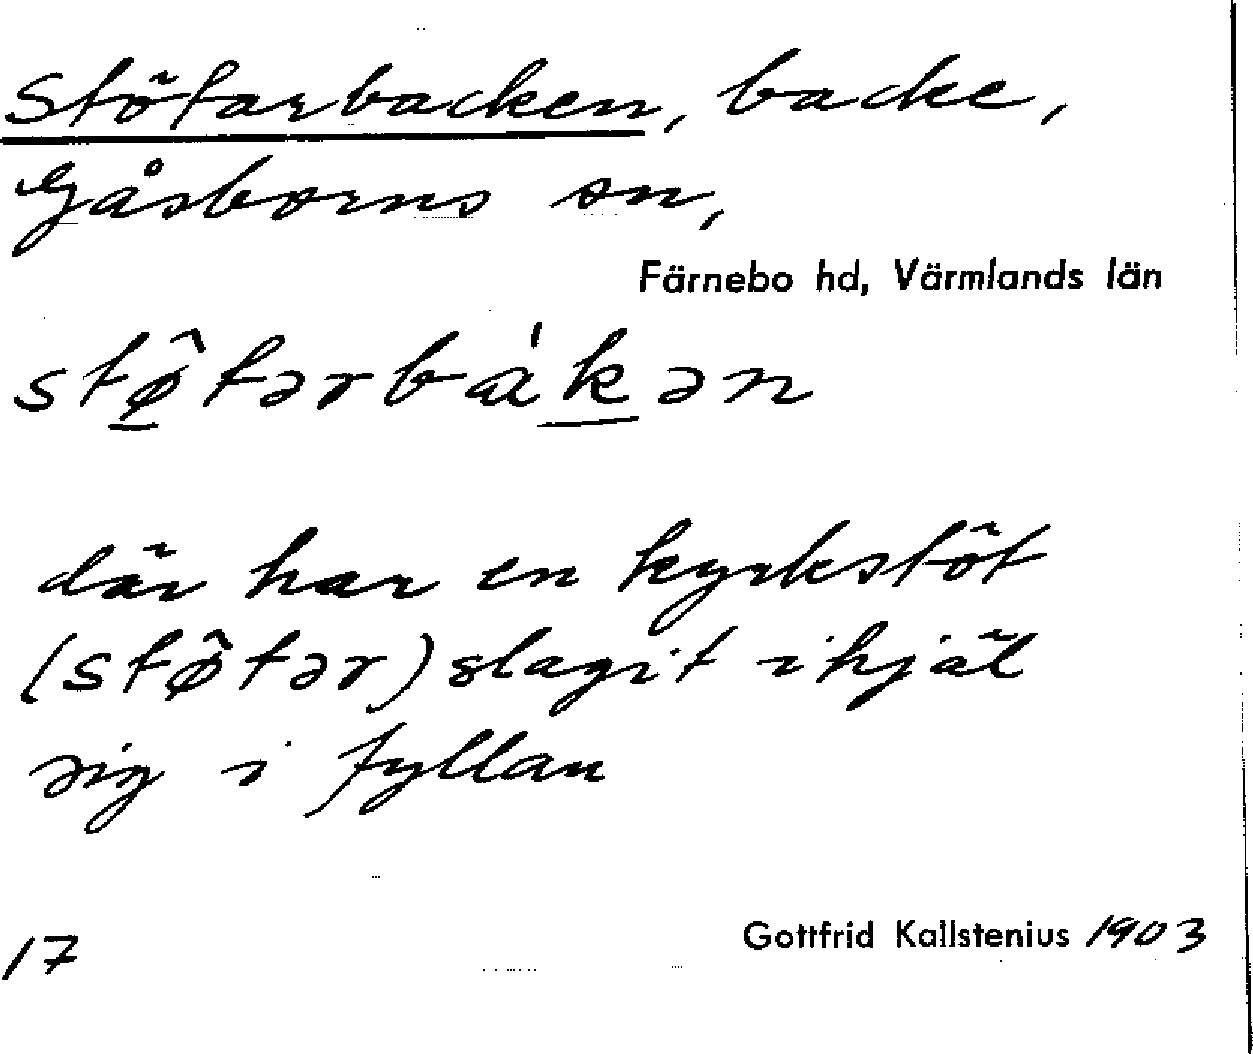 Stötarbacken, backe,
Gåsborns sn,
Färnebo hd, Värmlands län
stø̂tərbàkən
där har en kyrkstöt
(stø̂tər) slagit ihjäl
sig i fyllan
Gottfrid Kallstenius 1903
17